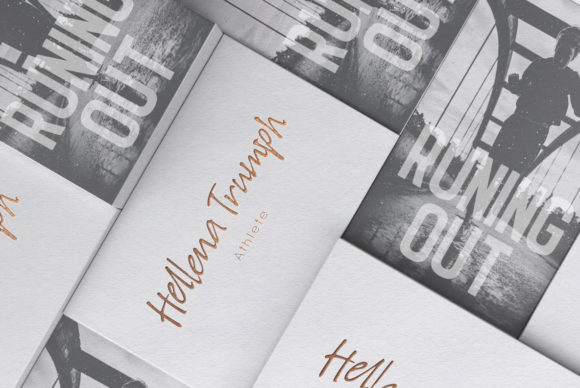 RUNING
OUT
RUNING
OUT
Hellena Trumph
Athlete
RUNING
OUT
ph
Helle